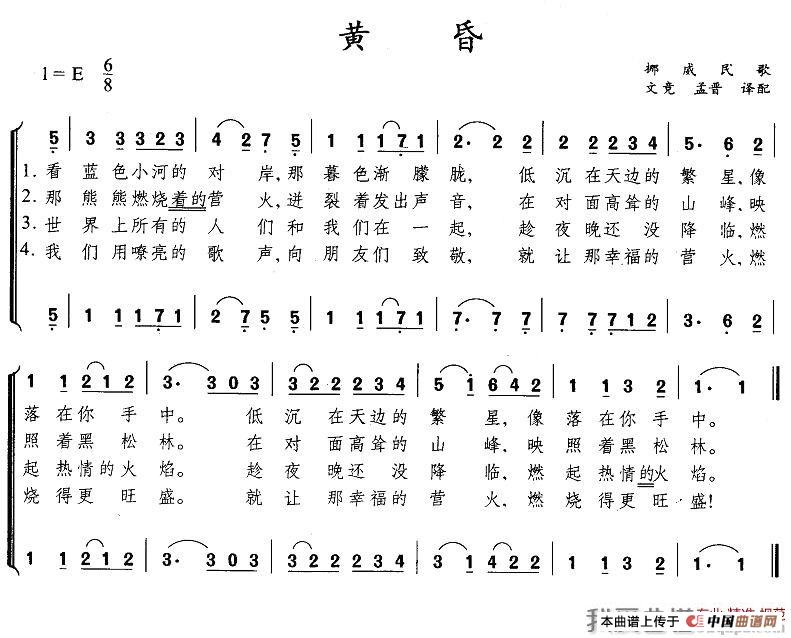 黄 昏
1=E 6/8
挪 威 民 歌
文竞 孟晋 译配
5 | 3 3 3 3 2 3 | 4 2 7 5 | 1 1 1 1 7 1 | 2· 2 2 | 2 2 2 2 3 4 | 5· 6 2
1. 看 蓝 色 小 河 的 对 岸, 那 暮 色 渐 朦 胧, 低 沉 在 天 边 的 繁 星, 像
2. 那 熊 熊 燃 烧 着 的 营 火, 迸 裂 着 发 出 声 音, 在 对 面 高 耸 的 山 峰, 映
3. 世 界 上 所 有 的 人 们 和 我 们 在 一 起, 趁 夜 晚 还 没 降 临, 燃
4. 我 们 用 嘹 亮 的 歌 声, 向 朋 友 们 致 敬, 就 让 那 幸 福 的 营 火, 燃
5 | 1 1 1 1 7 1 | 2 7 5 5 | 1 1 1 1 7 1 | 7· 7 7 | 7 7 7 7 1 2 | 3· 6 2
1 1 2 1 2 | 3· 3 0 3 | 3 2 2 2 3 4 | 5 1 6 4 2 | 1 1 3 2 | 1· 1
落 在 你 手 中。 低 沉 在 天 边 的 繁 星, 像 落 在 你 手 中。
照 着 黑 松 林。 在 对 面 高 耸 的 山 峰, 映 照 着 黑 松 林。
起 热 情 的 火 焰。 趁 夜 晚 还 没 降 临, 燃 起 热 情 的 火 焰。
烧 得 更 旺 盛。 就 让 那 幸 福 的 营 火, 燃 烧 得 更 旺 盛!
1 1 2 1 2 | 3· 3 0 3 | 3 2 2 2 3 4 | 3 1 1 2 2 | 1 1 3 2 | 1· 1
本曲谱上传于 中国曲谱网